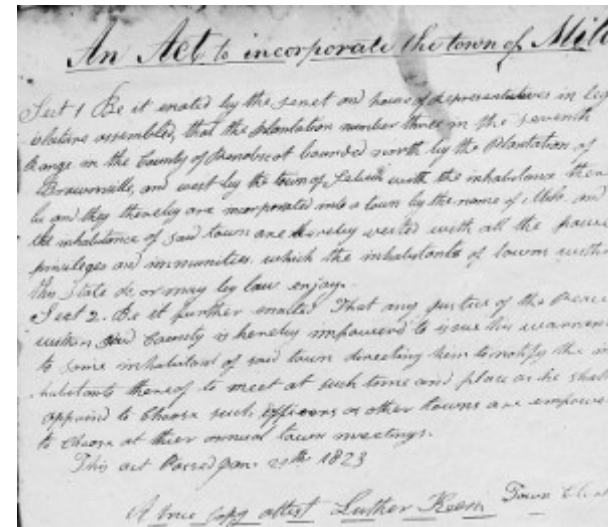 An Act to incorporate the town of Mil
Sect 1 Be it enated by the senet and house of representatives in Leg
islature assembled, that the plantation number three in the seventh
Range in the County of Penobscot bounded north by the Plantation of
Brownville, and west by the town of with the inhabitance then
be and they thereby are incorporated into a town by the name of Milo. and
the inhabitance of said town are hereby vested with all the powe
privileges and immunities which the inhabitants of towns within
this State do, or may by law enjoy.
Sect 2. Be it further enated That any justice of the Peace
within said County is hereby impowered to issue his warren
to some inhabitant of said town directing him to notify the in
habitants thereof to meet at such time and place as he shall
appoint to Choose such officers as other towns are empowe
to choose at thier annual town meetings.
This act Passed Jan. th 1823
A true Copy attest Luther Keen Town Cle